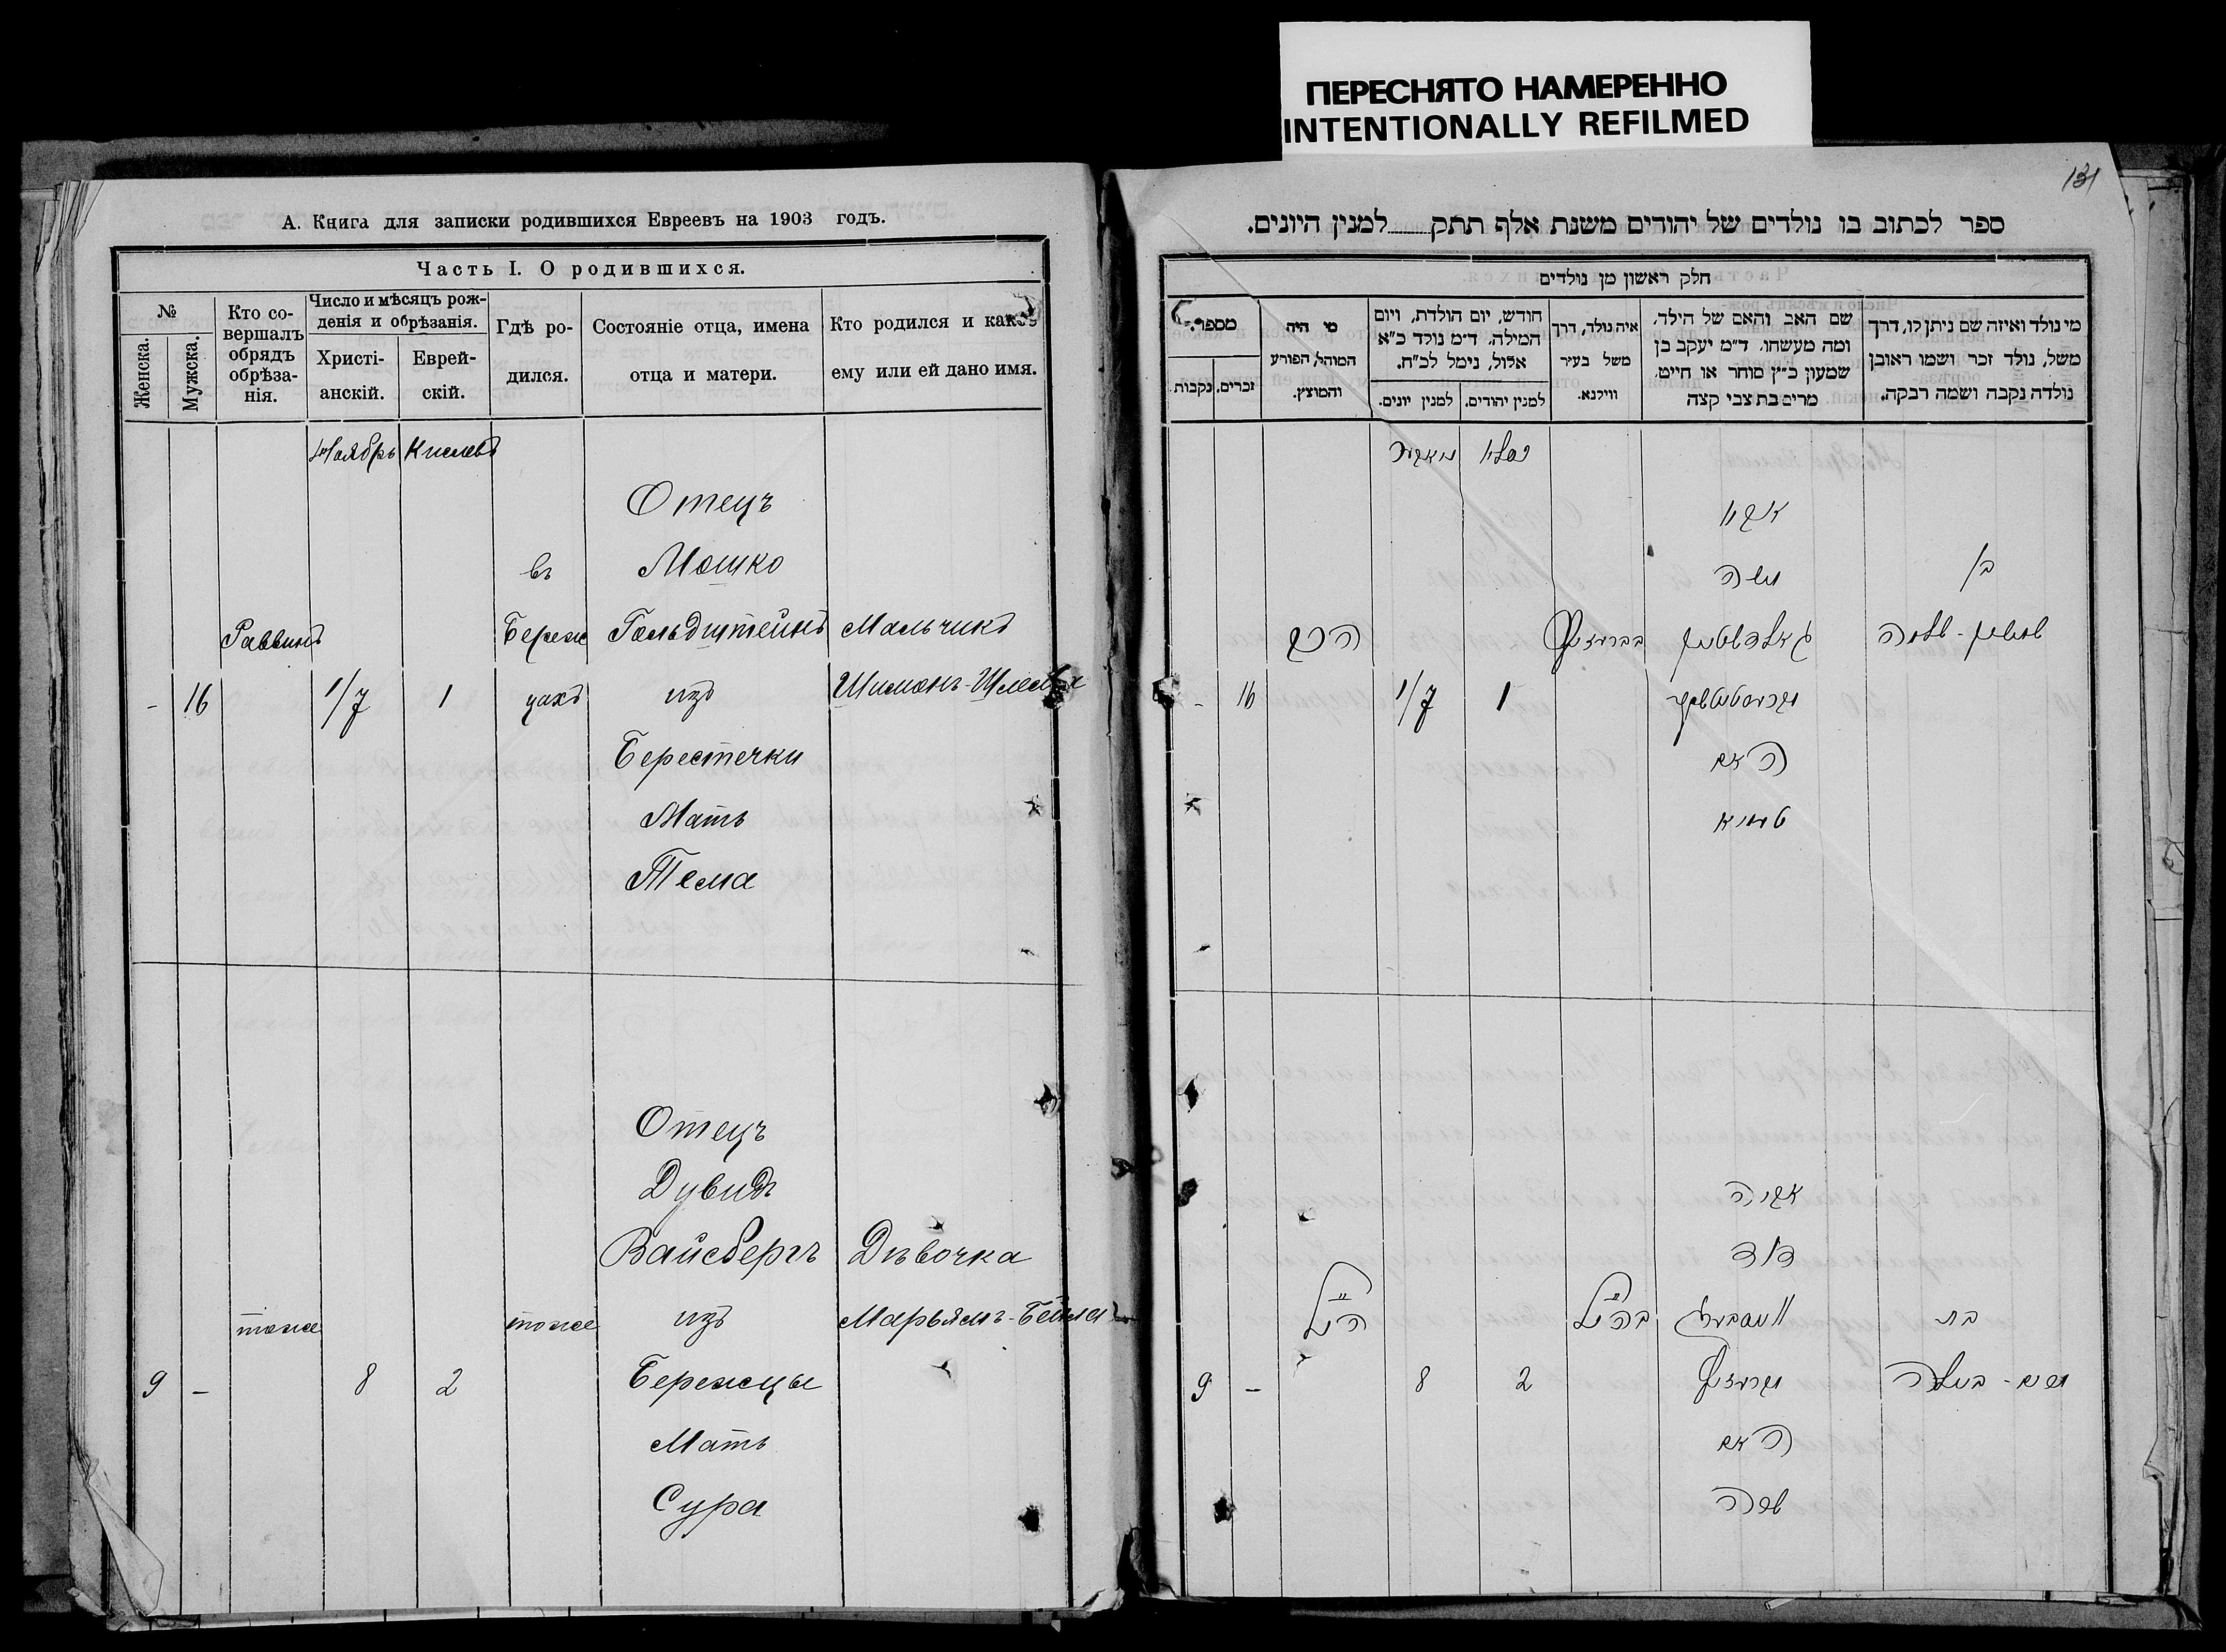 ПЕРЕСНЯТО НАМЕРЕННО
INTENTIONALLY REFILMED
А. Книга для записки родившихся Евреевъ на 1903 годъ.
Часть I. О родившихся.
№
Женска.
Мужска.
Кто со-
вершалъ
обрядъ
обрѣза-
нія.
Число и мѣсяцъ рож-
денія и обрѣзанія.
Христі-
анскій.
Еврей-
скій.
Гдѣ ро-
дился.
Состояніе отца, имена
отца и матери.
Кто родился и какое
ему или ей дано имя.
Ноябрь Кислевъ
Отецъ
въ Мошко
Раввинъ Береж Гольдштейнъ Мальчикъ
- 16 1/7 1 цахъ изъ Шимонъ-Шлема
Берестечки
Мать
Тема
Отецъ
Дувидъ
Вайсбергъ Дѣвочка
тоже тоже изъ Марьямъ-Бейла
9 - 8 2 Бережцы
Мать
Сура
131
ספר לכתוב בו נולדים של יהודים משנת אלף תתק למנין היונים.
חלק ראשון מן נולדים
מי נולד ואיזה שם ניתן לו, דרך
משל, נולד זכר ושמו ראובן
נולדה נקבה ושמה רבקה.
שם האב והאם של הילד,
ומה מעשהו. ד"מ יעקב בן
שמעון כ"ץ סוחר או חייט,
מרים בת צבי קצה
איה נולד, דרך
משל בעיר
ווילנא.
חודש, יום הולדת, ויום
המילה. ד"מ נולד כ"א
אלול, נימל לכ"ח.
למנין יהודים.
למנין יונים.
מי היה
המוהל, הפורע
והמוצץ.
מספר.
זכרים.
נקבות
כסליו
אביו
בן משה
שמעון-שלמה גאלדשטיין הרב
1 1/7 16 -
האם
טעמא
אביה
דוד
בת הנ"ל
מרים-ביילה 2 8 - 9
האם
שרה